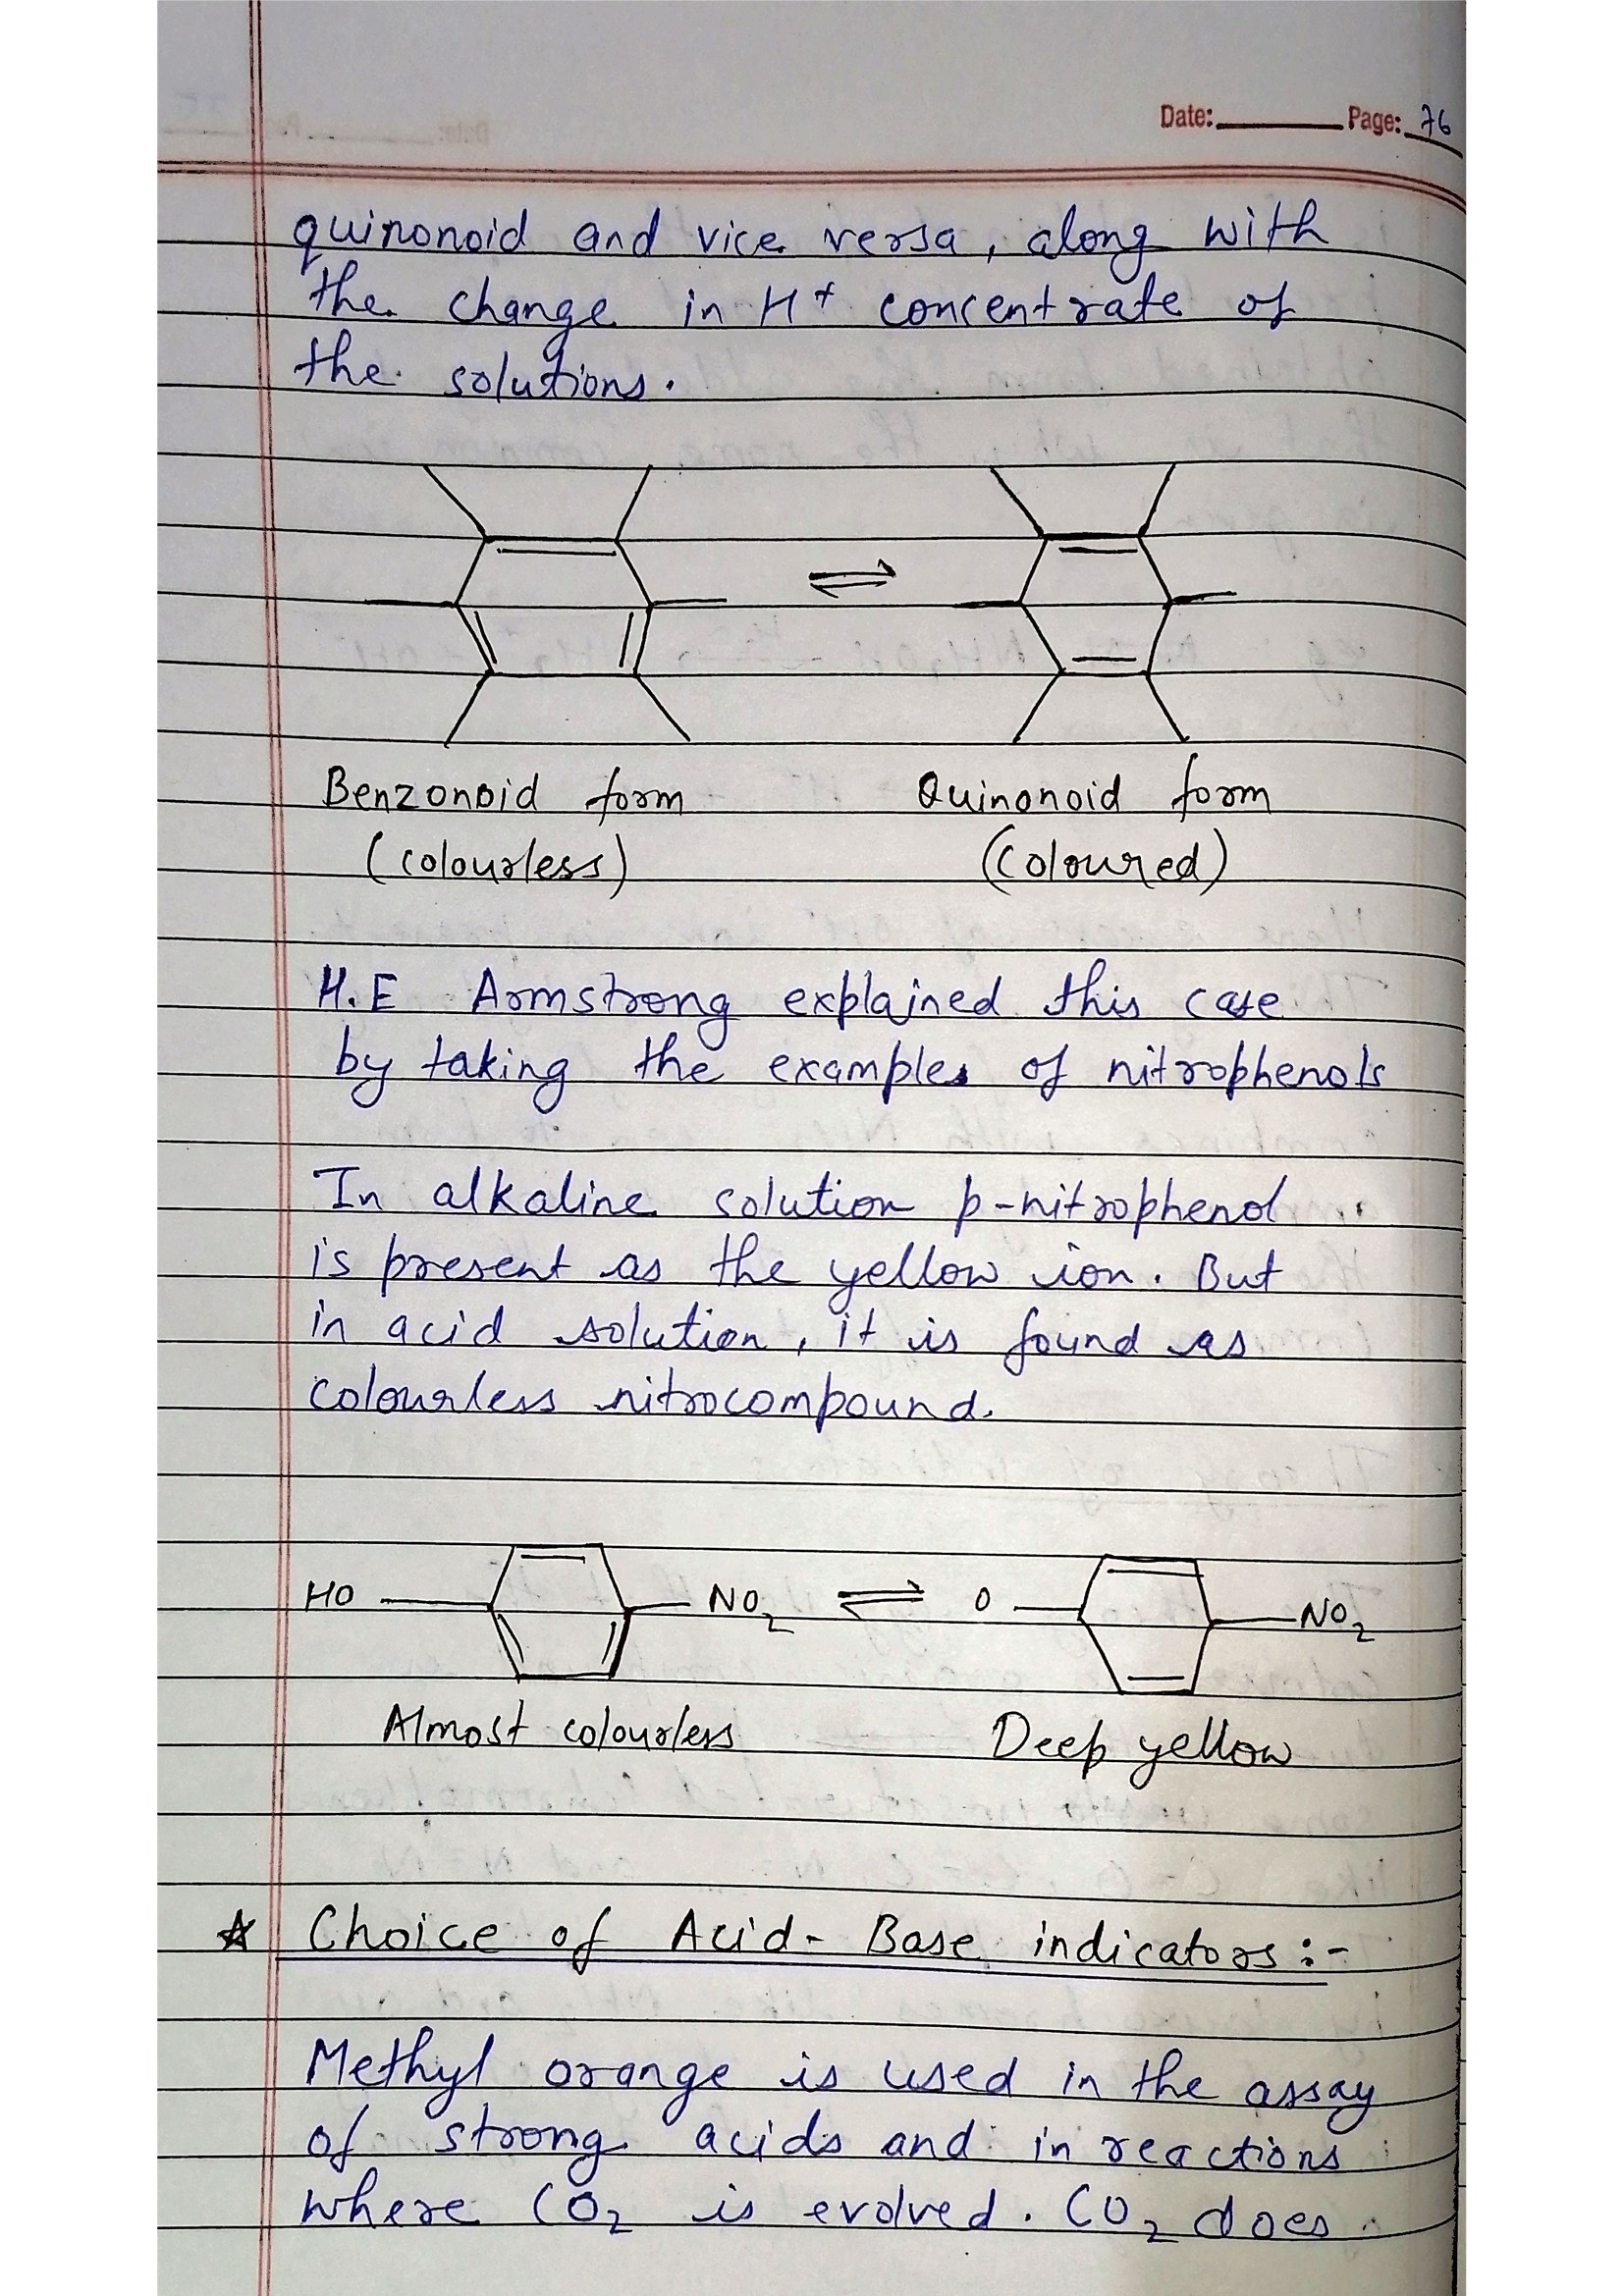 Date: Page: 76
quinonoid and vice versa, along with
the change in H+ concentrate of
the solutions.
⇌
Benzonoid form Quinonoid form
(colourless) (Coloured)
H.E Armstrong explained this case
by taking the examples of nitrophenols
In alkaline solution p-nitrophenol
is present as the yellow ion. But
in acid solution, it is found as
colourless nitrocompound.
HO NO2 ⇌ O NO2
Almost colourless Deep yellow
☆ Choice of Acid-Base indicators:-
Methyl orange is used in the assay
of strong acids and in reactions
where CO2 is evolved. CO2 does